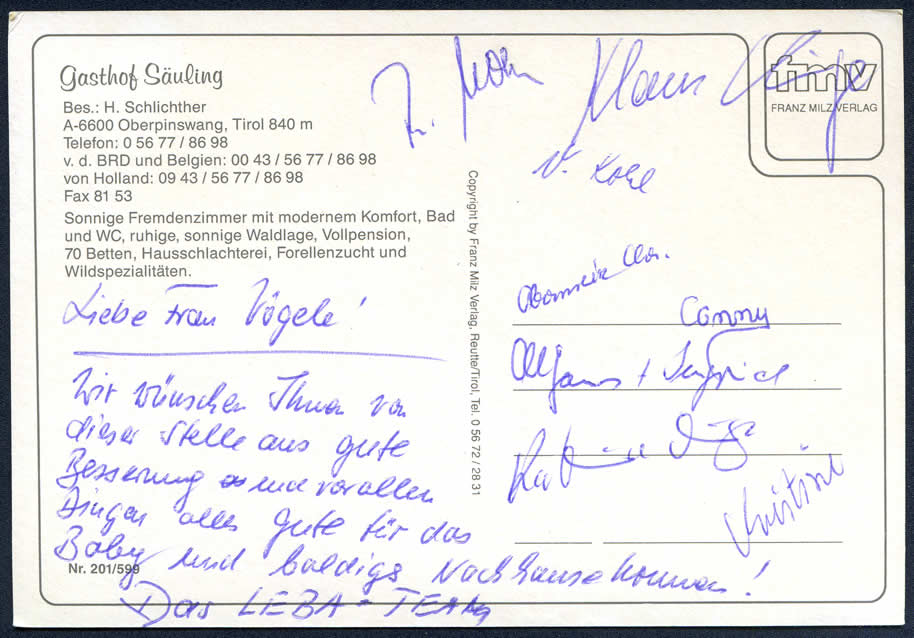 Gasthof Säuling
Bes.: H. Schlichther
A-6600 Oberpinswang, Tirol 840 m
Telefon: 0 56 77 / 86 98
v. d. BRD und Belgien: 00 43 / 56 77 / 86 98
von Holland: 09 43 / 56 77 / 86 98
Fax 81 53
Sonnige Fremdenzimmer mit modernem Komfort, Bad
und WC, ruhige, sonnige Waldlage, Vollpension,
70 Betten, Hausschlachterei, Forellenzucht und
Wildspezialitäten.
Liebe Frau Vögele!
Wir wünschen Ihnen von
dieser Stelle aus gute
Besserung und vor allen
Dingen alles Gute für das
Baby und baldigs Nachhausekommen!
Das LEBA-TEAM
Nr. 201/599
Copyright by Franz Milz Verlag, Reutte/Tirol, Tel. 0 56 72 / 28 31
fmv
FRANZ MILZ VERLAG
Klaus
V. Kohl
Conny
Christine